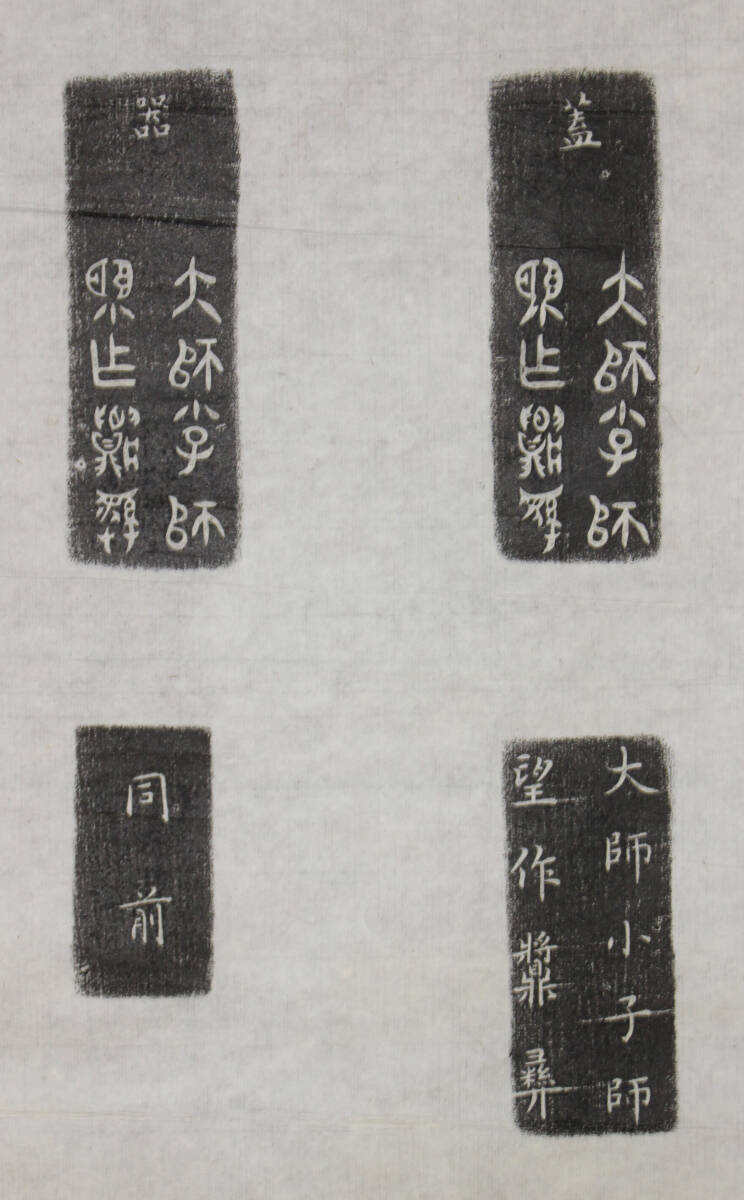 蓋
大師小子師
望作𩱧彝
器
大師小子師
望作𩱧彝
大師小子師
望作𩱧彝
同前